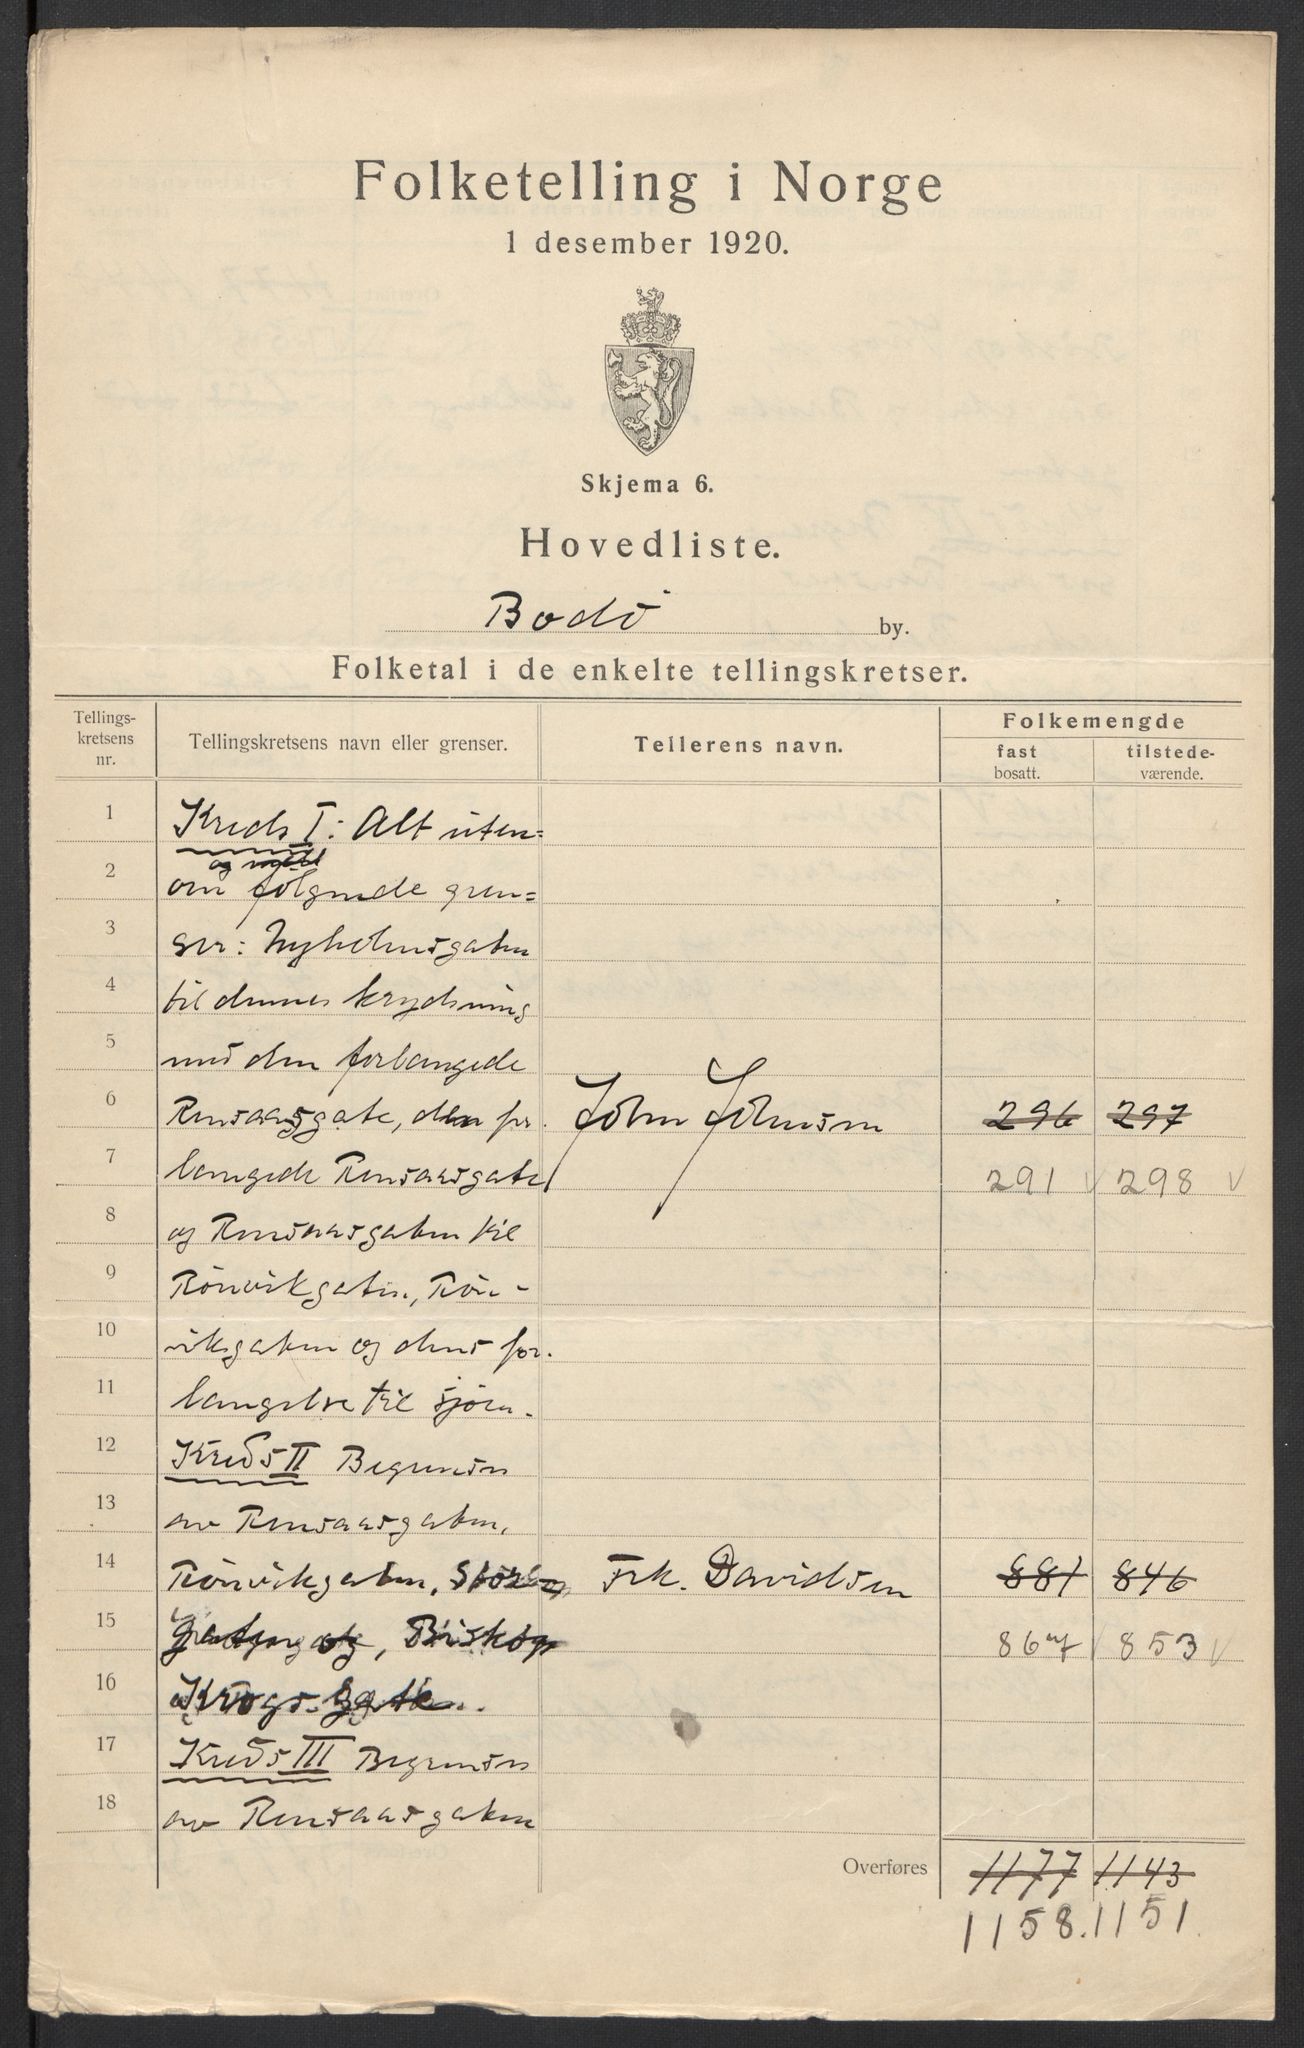 Folketelling i Norge
1 desember 1920.
Skjema 6.
Hovedliste.
Bodö by.
Folketal i de enkelte tellingskretser.
Tellings-
kretsens
nr.
Tellingskretsens navn eller grenser.
Tellerens navn.
Folkemengde
fast
bosatt.
tilstede-
værende.
1 Kreds I: Alt uten=
2 om følgende gren=
3 ser: Nyholmsgaten
4 til dennes krydsning
5 med den forlængede
6 Rensaasgate, den for- John Johnsen 296 297
7 længede Rensaasgate 291 298
8 og Rensaasgaten til
9 Rönvikgaten, Rön-
10 vikgaten og dens for-
11 længelse til sjöen.
12 Kreds II Begrenses
13 av Rensaasgaten,
14 Rönvikgaten, Frk. Davidsen 881 846
15 Biskop 867 853
16 Krogs Gate.
17 Kreds III Begrenses
18 av Rensaasgaten
Overføres 1177 1143
1158. 1151.